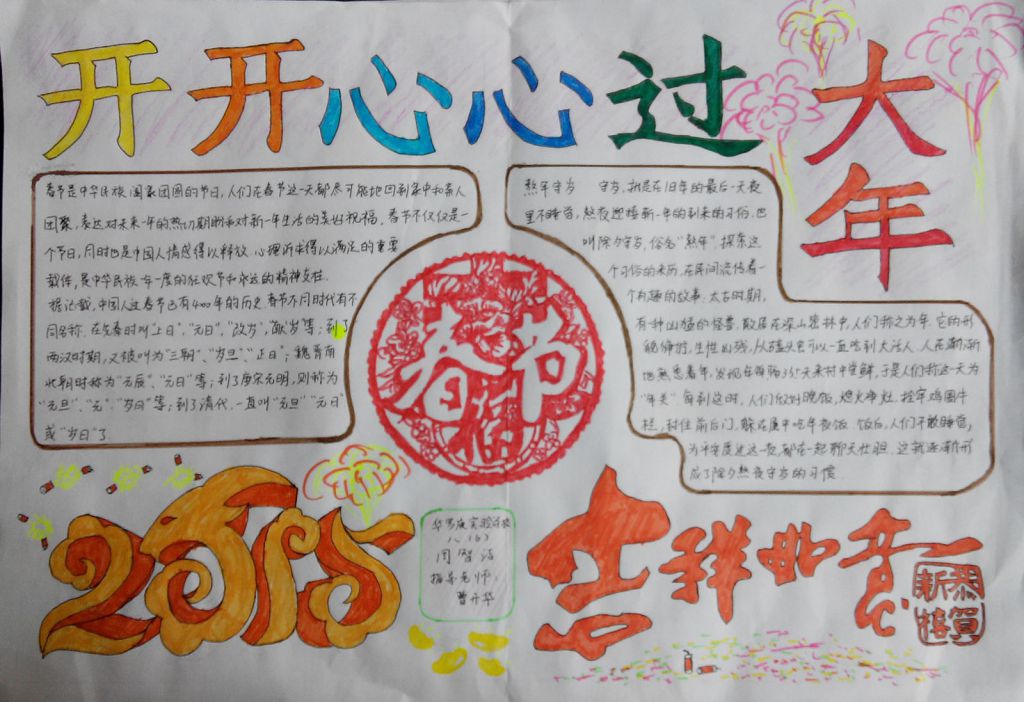 开开心心过大年
春节是中华民族阖家团圆的节日,人们在春节这一天都尽可能地回到家中和亲人
团聚,表达对未来一年的热切期盼和对新一年生活的美好祝福。春节不仅仅是一
个节日,同时也是中国人情感得以释放、心理诉求得以满足的重要
载体,是中华民族一年一度的狂欢节和永远的精神支柱。
据记载,中国人过春节已有4000年的历史 春节不同时代有不
同名称。在先秦时叫"上日"、"元日"、"改岁"、"献岁"等;到了
两汉时期,又被叫为"三朝"、"岁旦"、"正日";魏晋南
北朝时称为"元辰"、"元日"等;到了唐宋元明,则称为
"元旦"、"元"、"岁日"等;到了清代,一直叫"元旦""元日"
或"岁日"了
熬年守岁 守岁,就是在旧年的最后一天夜
里不睡觉,熬夜迎接新一年的到来的习俗,也
叫除夕守岁,俗名"熬年"。探索这
个习俗的来历,在民间流传着一
个有趣的故事:太古时期,
有一种凶猛的怪兽,散居在深山密林中,人们称之为年。它的形
貌狰狞,生性凶残,
从磕头虫可以一直吃到大活人,人
地熟悉着年,
尝鲜,于是人们称这一天为
"年关" 每到这时,人们
晚饭,熄火净灶,拴牢鸡圈牛
栏,封住前后门,躲在屋中吃年夜饭 饭后,人们不敢睡觉,
为平安度过这一夜,都在一起聊天壮胆 这就逐渐形
成了除夕熬夜守岁的习惯
春节
福
2015
华罗庚实验学校
八(6)
周智洁
指导老师:
曹开华
吉祥如意
恭贺新禧